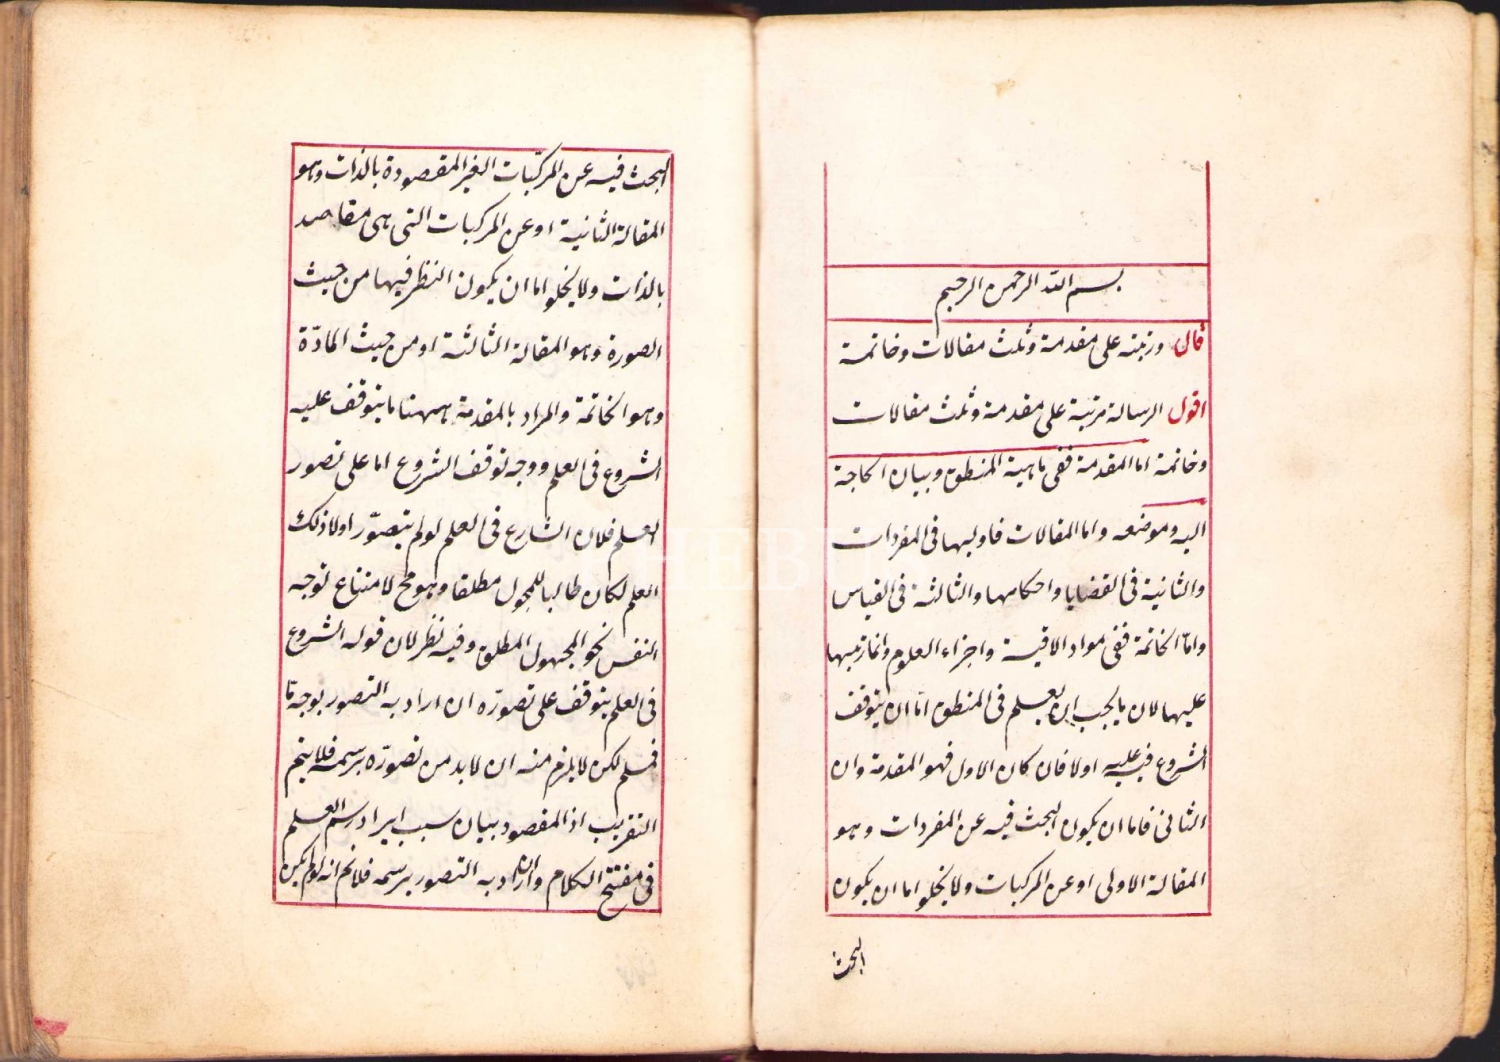 بسم الله الرحمن الرحيم
قال ورتبته على مقدمة وثلث مقالات وخاتمة
اقول الرسالة مرتبة على مقدمة وثلث مقالات
وخاتمة اما المقدمة ففى ماهية المنطق وبيان الحاجة
اليه وموضعه واما المقالات فاوليها فى المفردات
والثانية فى القضايا واحكامها والثالثة فى القياس
وامّا الخاتمة ففى مواد الاقيسة واجزاء العلوم وانما رتبها
عليها لان ما يجب ان يعلم فى المنطق امّا ان يتوقف
الشروع فيه عليه اولا فان كان الاول فهو المقدمة وان
الثانى فاما ان يكون البحث فيه عن المفردات وهو
المقالة الاولى او عن المركبات ولا يخلوا اما ان يكون
البحث
البحث فيه عن المركّبات الغير المقصودة بالذات وهو
المقالة الثانية او عن المركبات التى هى مقاصد
بالذات ولا يخلوا اما ان يكون النظر فيها من حيث
الصورة وهو المقالة الثالثة او من حيث المادّة
وهو الخاتمة والمراد بالمقدمة ههنا ما يتوقف عليه
الشروع فى العلم ووجه توقف الشروع اما على تصور
العلم فلان الشارع فى العلم لو لم يتصوّر اولا ذلك
العلم لكان طالبا للمجهول مطلقا وهو مح لامتناع توجه
النفس نحو المجهول المطلق وفيه نظر لان قوله الشروع
فى العلم يتوقف على تصوّره ان اراد به التصور بوجه مّا
فمسلم لكن لا يلزم منه ان لا بد من تصوّره برسمه فلا يتم
التقريب اذ المقصود بيان سبب ايراد رسم العلم
فى مفتتح الكلام وان اراد به التصور برسمه فلانم انه لو لم يكن